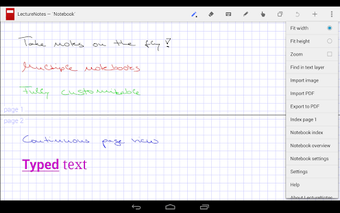 LectureNotes – Notebook
Take notes on the fly!
Multiple notebooks
Fully customizable
page 1
page 2
Continuous page view
Typed text
Fit width
Fit height
Zoom
Find in text layer
Import image
Import PDF
Export to PDF
Index page 1
Notebook index
Notebook overview
Notebook settings
Settings
Help
About LectureNotes